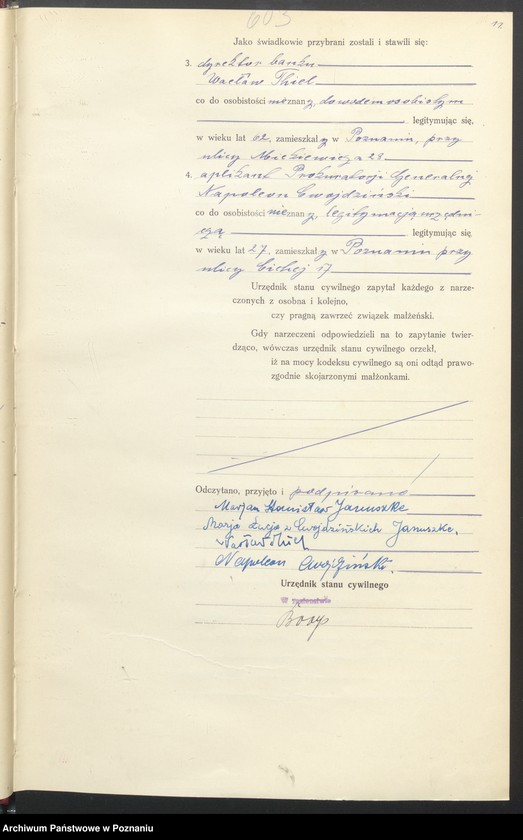 603
12
Jako świadkowie przybrani zostali i stawili się:
3. dyrektor banku
Wacław Thiel
co do osobistości nieznany, dowodem osobistym
legitymując się,
w wieku lat 62, zamieszkały w Poznaniu, przy
ulicy Mickiewicza 28
4. aplikant Prokuratorji Generalnej
Napoleon Cwojdziński
co do osobistości nieznany, legitymacją urzędni-
czą legitymując się
w wieku lat 27, zamieszkały w Poznaniu przy
ulicy Cichej 17
Urzędnik stanu cywilnego zapytał każdego z narze-
czonych z osobna i kolejno,
czy pragną zawrzeć związek małżeński.
Gdy narzeczeni odpowiedzieli na to zapytanie twier-
dząco, wówczas urzędnik stanu cywilnego orzekł,
iż na mocy kodeksu cywilnego są oni odtąd prawo-
zgodnie skojarzonymi małżonkami.
Odczytano, przyjęto i podpisano
Marjan Stanisław Januszke
Marja Łucja z Cwojdzińskich Januszke.
Wacław Thiel
Napoleon Cwojdziński.
Urzędnik stanu cywilnego
W zastępstwie
Archiwum Państwowe w Poznaniu